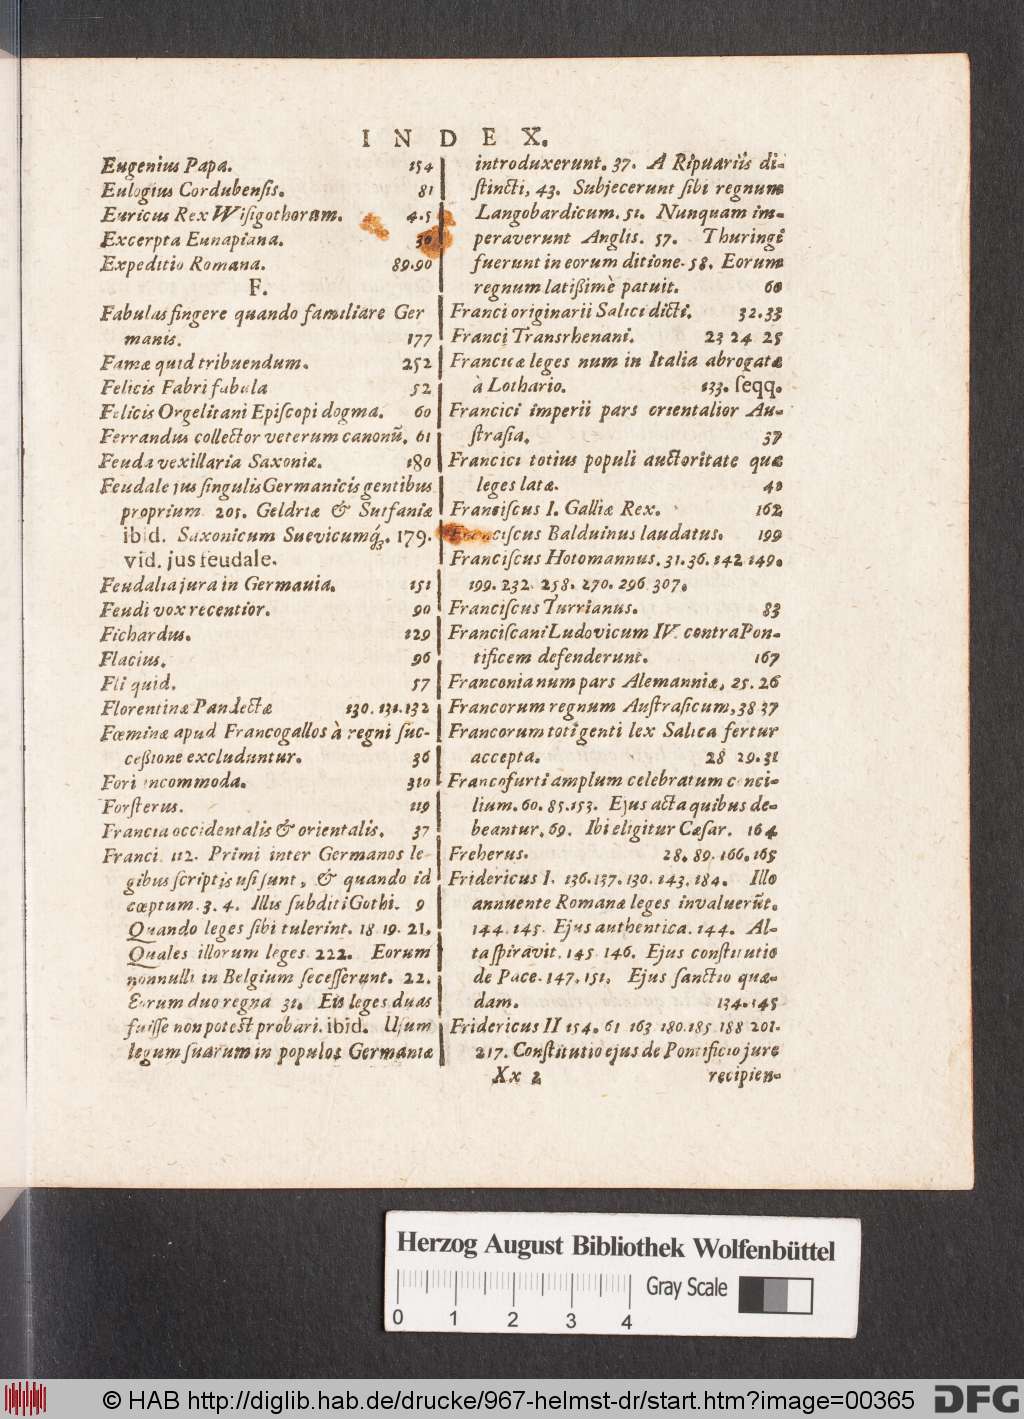 INDEX.
Eugenius Papa. 154
Eulogius Cordubensis. 81
Euricus Rex Wisigothorum. 4.5
Excerpta Eunapiana. 30
Expeditio Romana. 89.90
F.
Fabulas fingere quando familiare Ger
manis. 177
Famæ quid tribuendum. 252
Felicis Fabri fabula 52
Felicis Orgelitani Episcopi dogma. 60
Ferrandus collector veterum canonũ. 61
Feuda vexillaria Saxoniæ. 180
Feudale jus singulis Germanicis gentibus
proprium 205. Geldriæ & Sutfaniæ
ibid. Saxonicum Suevicumq́; 179.
vid. jus feudale.
Feudalia jura in Germania. 151
Feudi vox recentior. 90
Fichardus. 129
Flacius. 96
Fli quid. 57
Florentinæ Pandectæ 130.131.132
Fœminæ apud Francogallos à regni suc-
cessione excluduntur. 36
Fori incommoda. 310
Forsterus. 119
Francia occidentalis & orientalis. 37
Franci 112. Primi inter Germanos le-
gibus scriptis usi sunt, & quando id
cœptum. 3. 4. Illis subditi Gothi. 9
Quando leges sibi tulerint. 18.19.21.
Quales illorum leges 222. Eorum
nonnulli in Belgium secesserunt. 22.
Eorum duo regna 31. Eis leges duas
fuisse non potest probari. ibid. Usum
legum suarum in populos Germaniæ
introduxerunt. 37. A Ripuariis di-
stincti, 43. Subjecerunt sibi regnum
Langobardicum. 51. Nunquam im-
peraverunt Anglis. 57. Thuringi
fuerunt in eorum ditione. 58. Eorum
regnum latissimè patuit. 60
Franci originarii Salici dicti. 32.33
Franci Transrhenani. 23 24 25
Francicæ leges num in Italia abrogatæ
à Lothario. 133. seqq.
Francici imperii pars orientalior Au-
strasia. 37
Francici totius populi auctoritate quæ
leges latæ. 40
Franciscus I. Galliæ Rex. 162
Franciscus Balduinus laudatus. 199
Franciscus Hotomannus. 31.36.142 149.
199. 232. 258. 270. 296 307.
Franciscus Turrianus. 83
Franciscani Ludovicum IV. contra Pon-
tificem defenderunt. 167
Franconia num pars Alemanniæ, 25.26
Francorum regnum Austrasicum, 38 37
Francorum toti genti lex Salica fertur
accepta. 28 29.31
Francofurti amplum celebratum conci-
lium. 60. 85.153. Ejus acta quibus de-
beantur. 69. Ibi eligitur Cæsar. 164
Freherus. 28. 89. 166. 165
Fridericus I. 136.137. 130. 143. 184. Illo
annuente Romanæ leges invaluerũt.
144. 145. Ejus authentica. 144. Al-
ta spiravit. 145 146. Ejus constitutio
de Pace. 147. 151. Ejus sanctio quæ-
dam. 134.145
Fridericus II 154. 61 163 180.185 188 201.
217. Constitutio ejus de Pontificio jure
Xx 2 recipien-
Herzog August Bibliothek Wolfenbüttel
Gray Scale
0 1 2 3 4
© HAB http://diglib.hab.de/drucke/967-helmst-dr/start.htm?image=00365 DFG